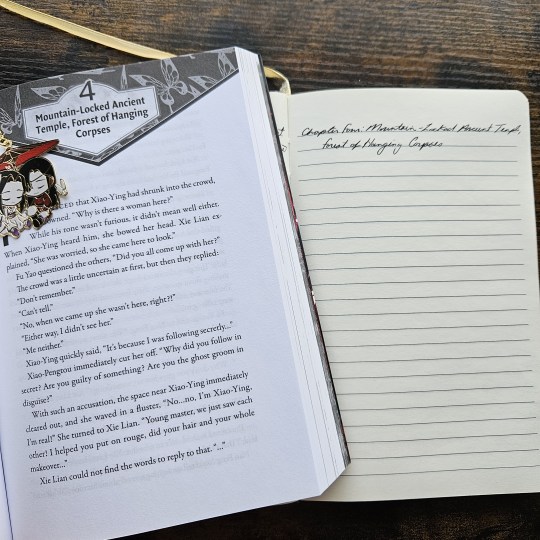 4
Mountain-Locked Ancient
Temple, Forest of Hanging
Corpses
that Xiao-Ying had shrunk into the crowd,
"Why is there a woman here?"
While his tone wasn't furious, it didn't mean well either.
When Xiao-Ying heard him, she bowed her head. Xie Lian ex-
plained, "She was worried, so she came here to look."
Fu Yao questioned the others, "Did you all come up with her?"
The crowd was a little uncertain at first, but then they replied:
"Don't remember."
"Can't tell."
"No, when we came up she wasn't here, right?!"
"Either way, I didn't see her."
"Me neither."
Xiao-Ying quickly said, "It's because I was following secretly..."
Xiao-Pengtou immediately cut her off. "Why did you follow in
secret? Are you guilty of something? Are you the ghost groom in
disguise?"
With such an accusation, the space near Xiao-Ying immediately
cleared out, and she waved in a fluster, "No...no, I'm Xiao-Ying,
I'm real!" She turned to Xie Lian. "Young master, we just saw each
other! I helped you put on rouge, did your hair and your whole
makeover..."
Xie Lian could not find the words to reply to that. "..."
Chapter Four: Mountain-Locked Ancient Temple,
Forest of Hanging Corpses